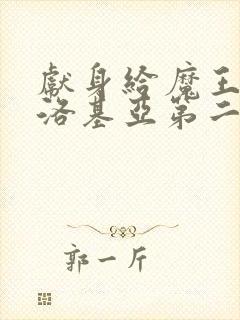 獻身給魔王伊
洛基亞第二
郭一斤